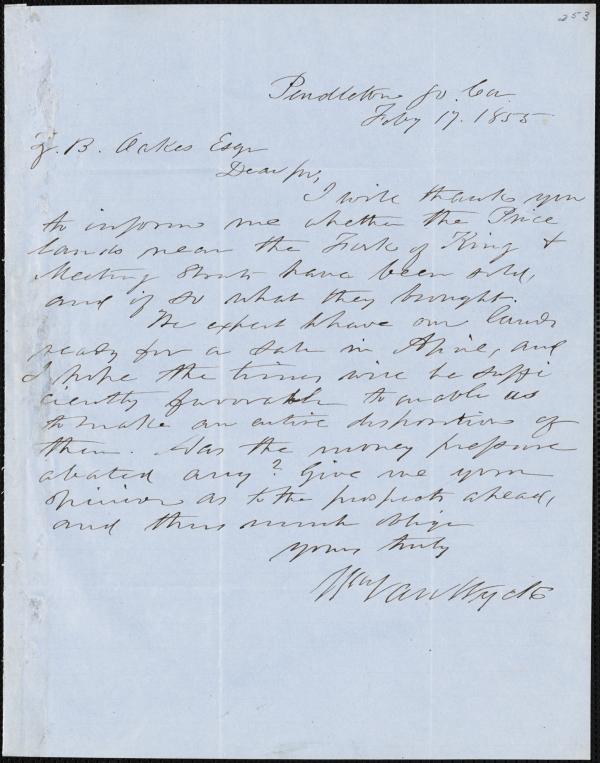 253
Pendleton So. Ca.
Feby 17. 1855
Z. B. Oakes Esqr
Dear Sir,
I will thank you
to inform me whether the Price
lands near the Fork of King &
Meeting Streets have been sold,
and if so what they brought.
We expect to have our lands
ready for a sale in April, and
I hope the times will be suffi
ciently favorable to enable us
to make an entire disposition of
them. Has the money pressure
abated any? Give me your
opinion as to the prospects ahead,
and thus much oblige
yours truly
Wm Van Wyck